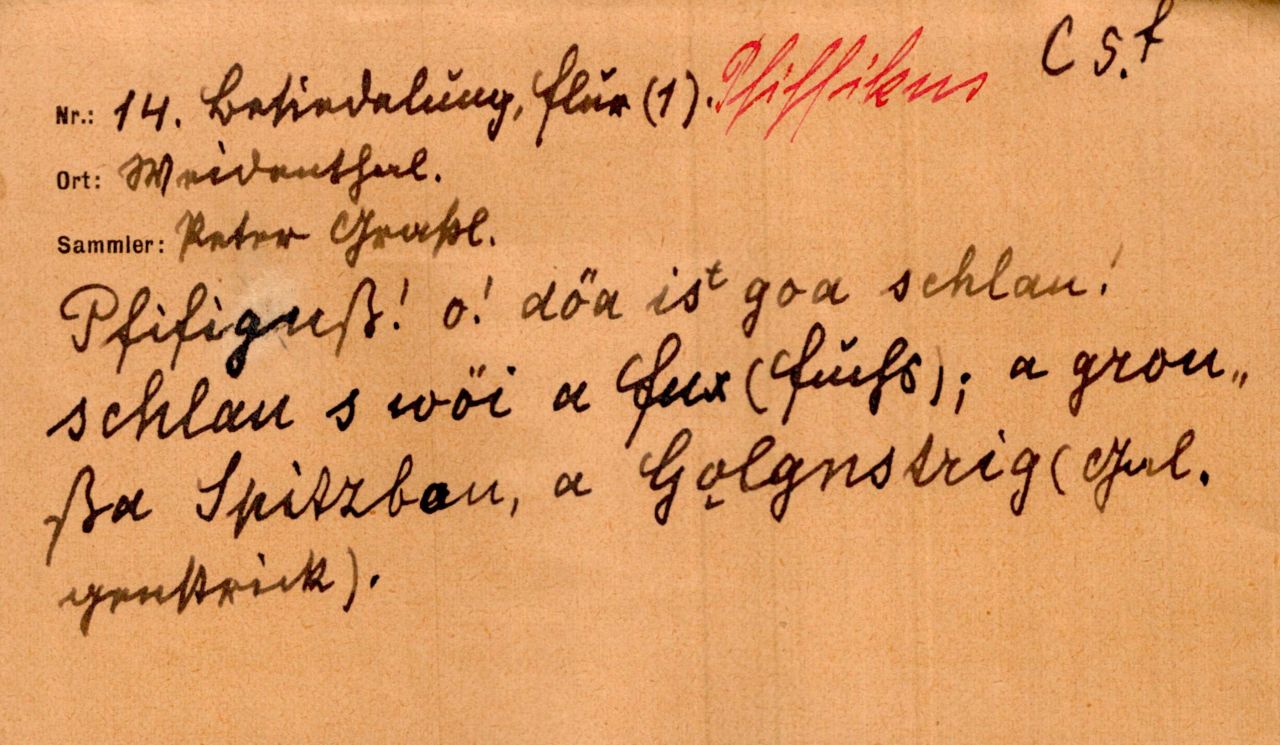 C 5.f
Nr.: 14. Besiedelung, Flur (1). Pfiffikus
Ort: Weidenthal.
Sammler: Peter Graßl.
Pfifignß! o! döa ist goa schlau!
schlau s wöi a Fux (Fuchs); a grou„
ßa Spitzbau, a Golgnstrig (Gal.
genstrick).